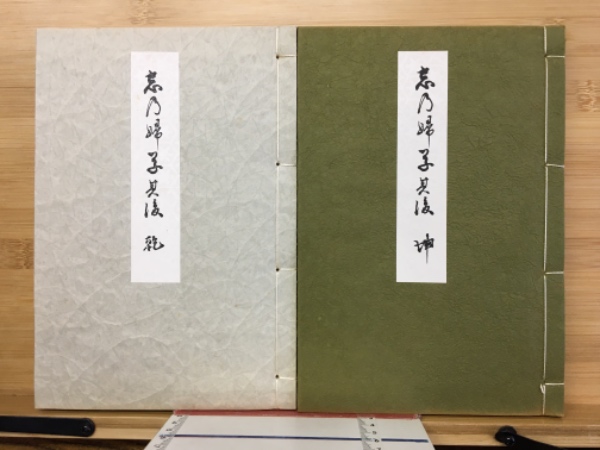 志乃婦草其後 乾
志乃婦草其後 坤